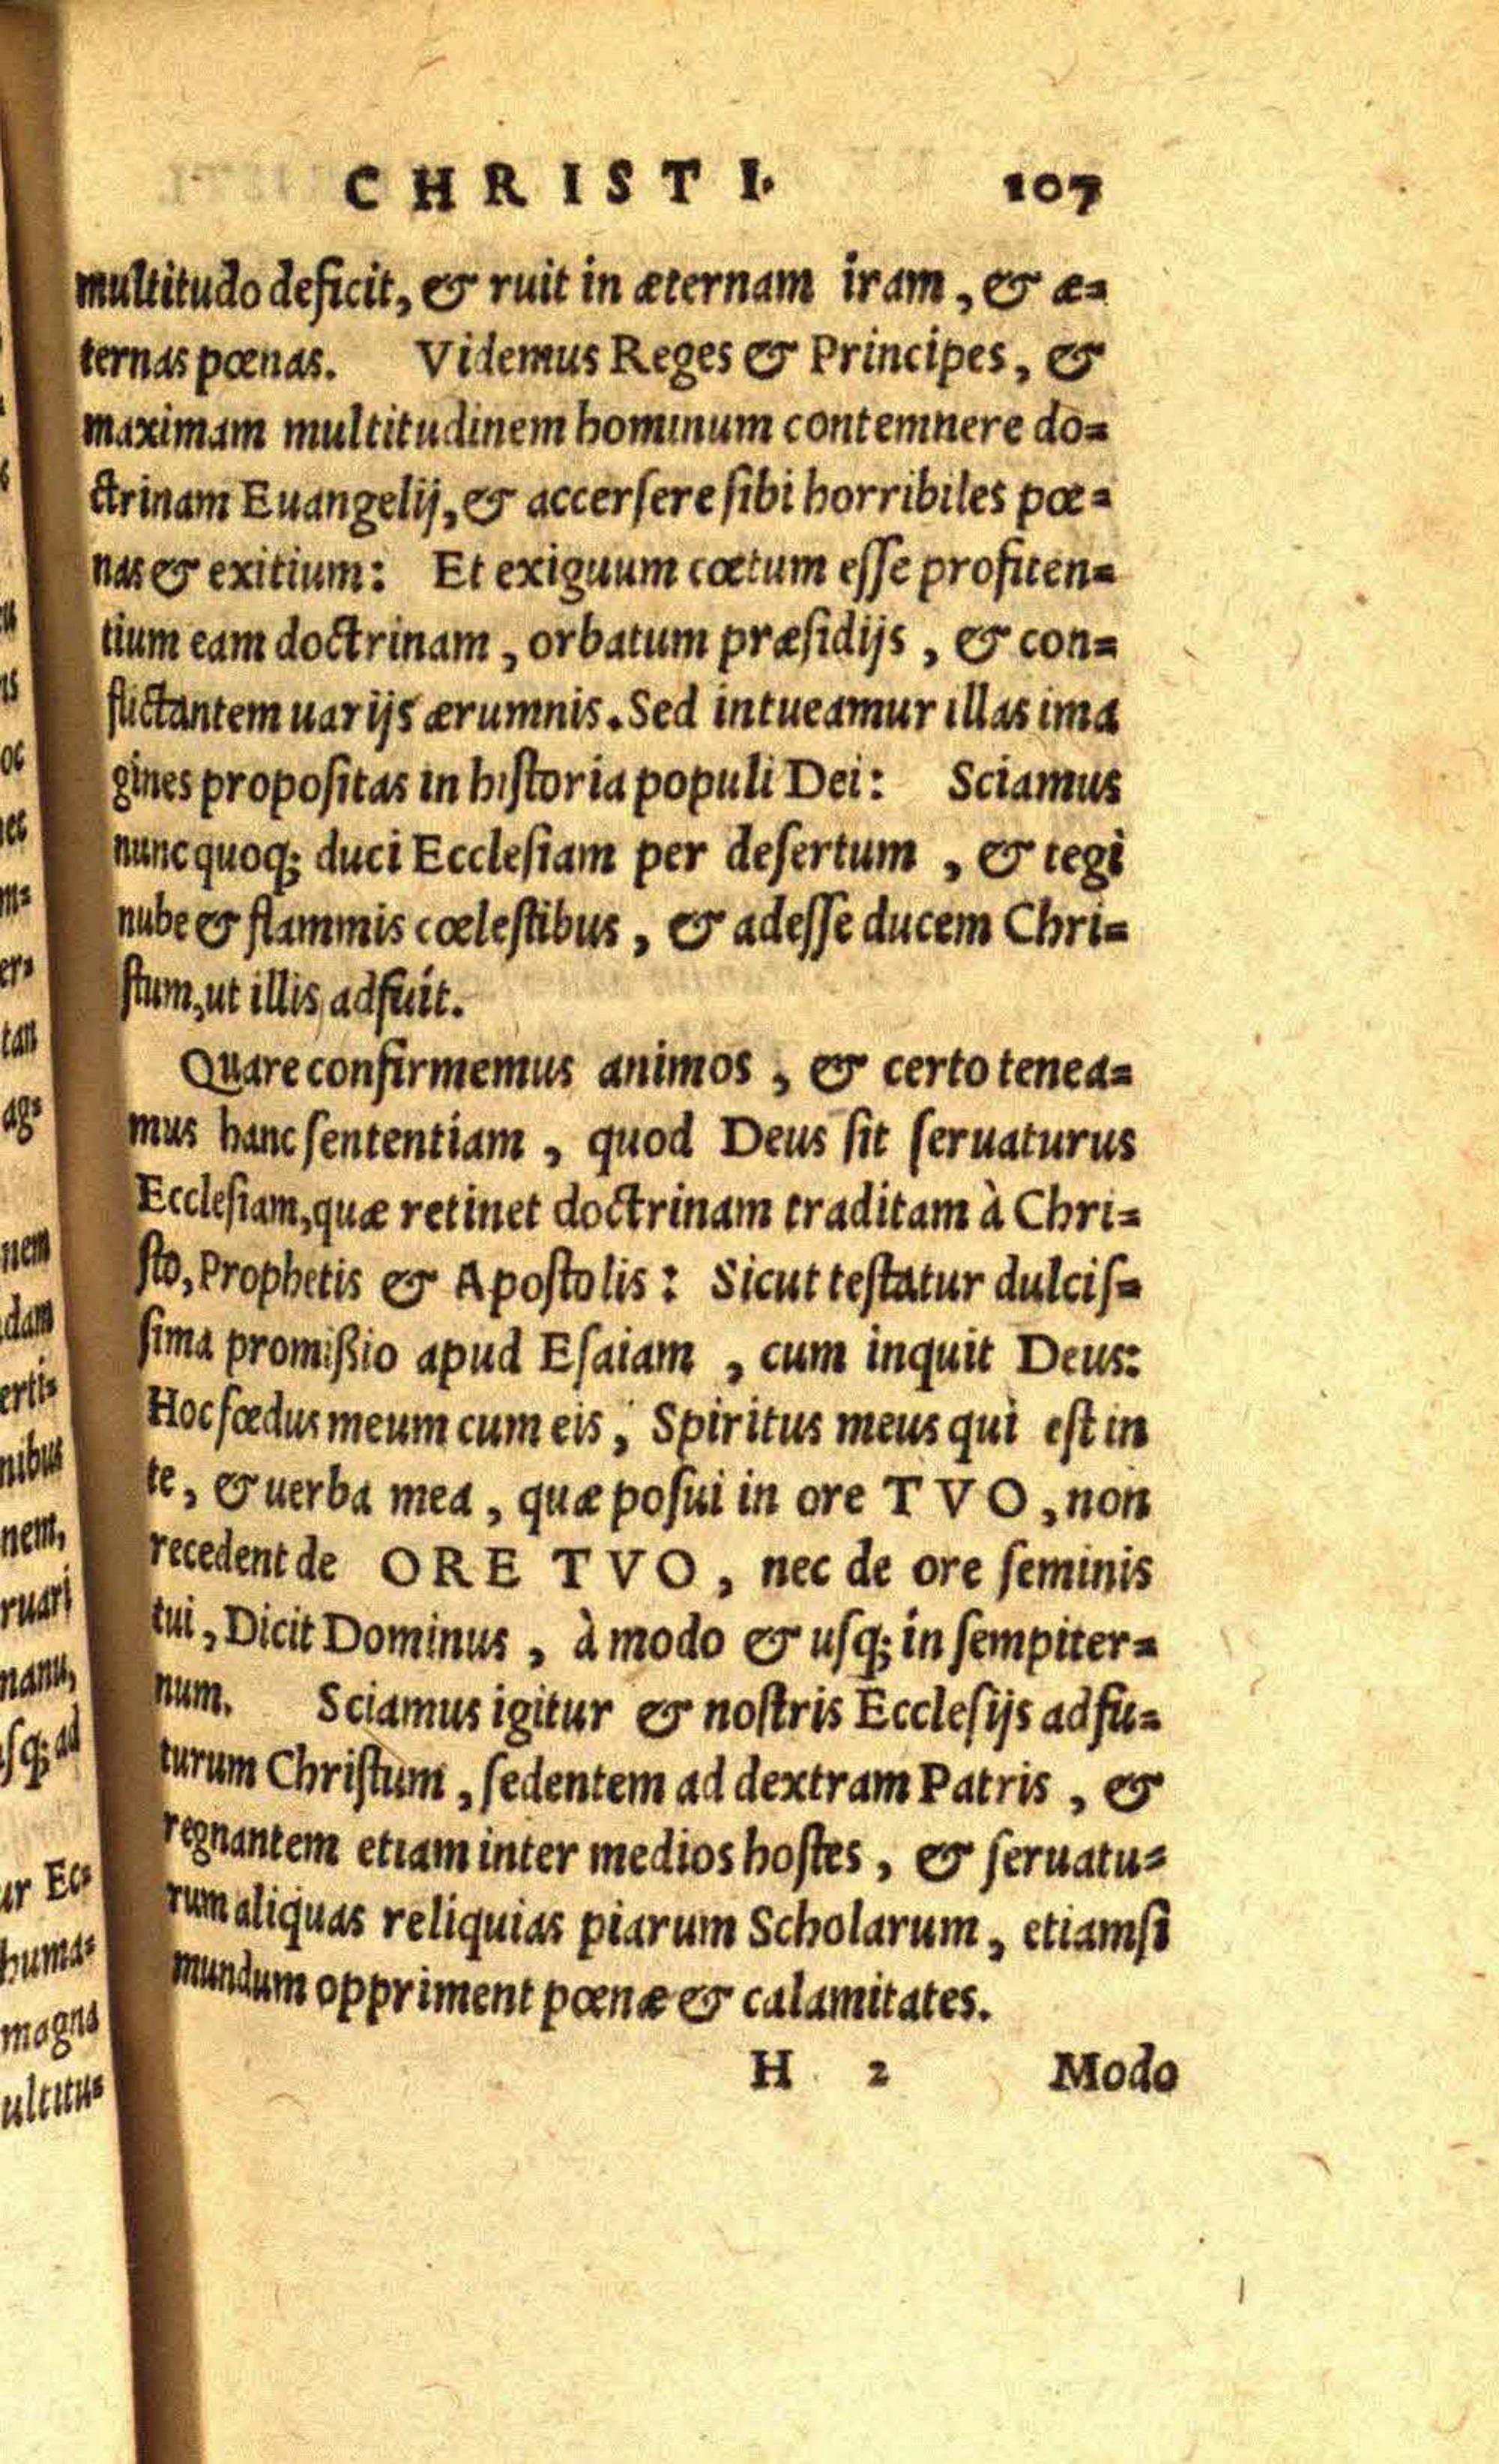 CHRISTI. 107
multitudo deficit, & ruit in æternam iram, & æ=
ternas pœnas. Videmus Reges & Principes, &
maximam multitudinem hominum contemnere do=
ctrinam Euangelij, & accerſere ſibi horribiles pœ=
nas & exitium: Et exiguum cœtum eſſe profiten=
tium eam doctrinam, orbatum præſidijs, & con=
flictantem uarijs ærumnis. Sed intueamur illas ima
gines propoſitas in hiſtoria populi Dei: Sciamus
nunc quoq; duci Eccleſiam per deſertum, & tegi
nube & flammis cœleſtibus, & adeſſe ducem Chri=
ſtum, ut illis adfuit.
Quare confirmemus animos, & certo tenea=
mus hanc ſententiam, quod Deus ſit ſeruaturus
Eccleſiam, quæ retinet doctrinam traditam à Chri=
ſto, Prophetis & Apoſtolis: Sicut teſtatur dulciſ=
ſima promißio apud Eſaiam, cum inquit Deus:
Hoc fœdus meum cum eis, Spiritus meus qui eſt in
te, & uerba mea, quæ poſui in ore TVO, non
recedent de ORE TVO, nec de ore ſeminis
tui, Dicit Dominus, à modo & uſq; in ſempiter=
num. Sciamus igitur & noſtris Eccleſijs adfu=
turum Chriſtum, ſedentem ad dextram Patris, &
regnantem etiam inter medios hoſtes, & ſeruatu=
rum aliquas reliquias piarum Scholarum, etiamſi
mundum oppriment pœnæ & calamitates.
H 2 Modo